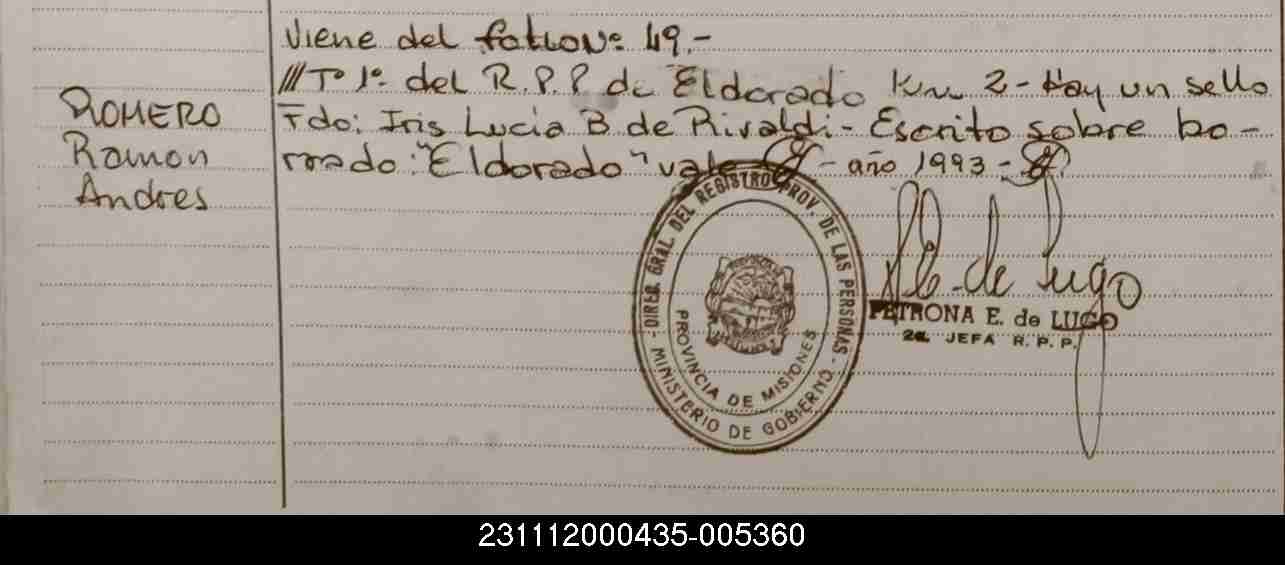 Viene del folio Nº 49.-
ROMERO
Ramon
Andres
///Tº 1º del R.P.P. de Eldorado Km 2 - Hay un sello
Fdo: Iris Lucia B de Rivaldi - Escrito sobre bo-
rrado: "Eldorado" vale - año 1993 -
DIREC. GRAL. DEL REGISTRO PROV. DE LAS PERSONAS
PROVINCIA DE MISIONES
MINISTERIO DE GOBIERNO
de Lugo
PETRONA E. de LUGO
2a. JEFA R. P. P.
231112000435-005360